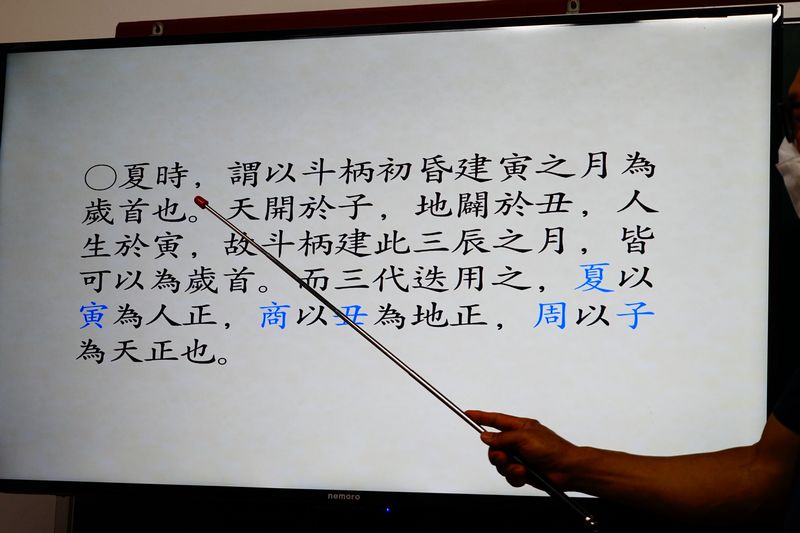 ○夏時，謂以斗柄初昏建寅之月為
歲首也。天開於子，地闢於丑，人
生於寅，故斗柄建此三辰之月，皆
可以為歲首。而三代迭用之，夏以
寅為人正，商以丑為地正，周以子
為天正也。
nemoro